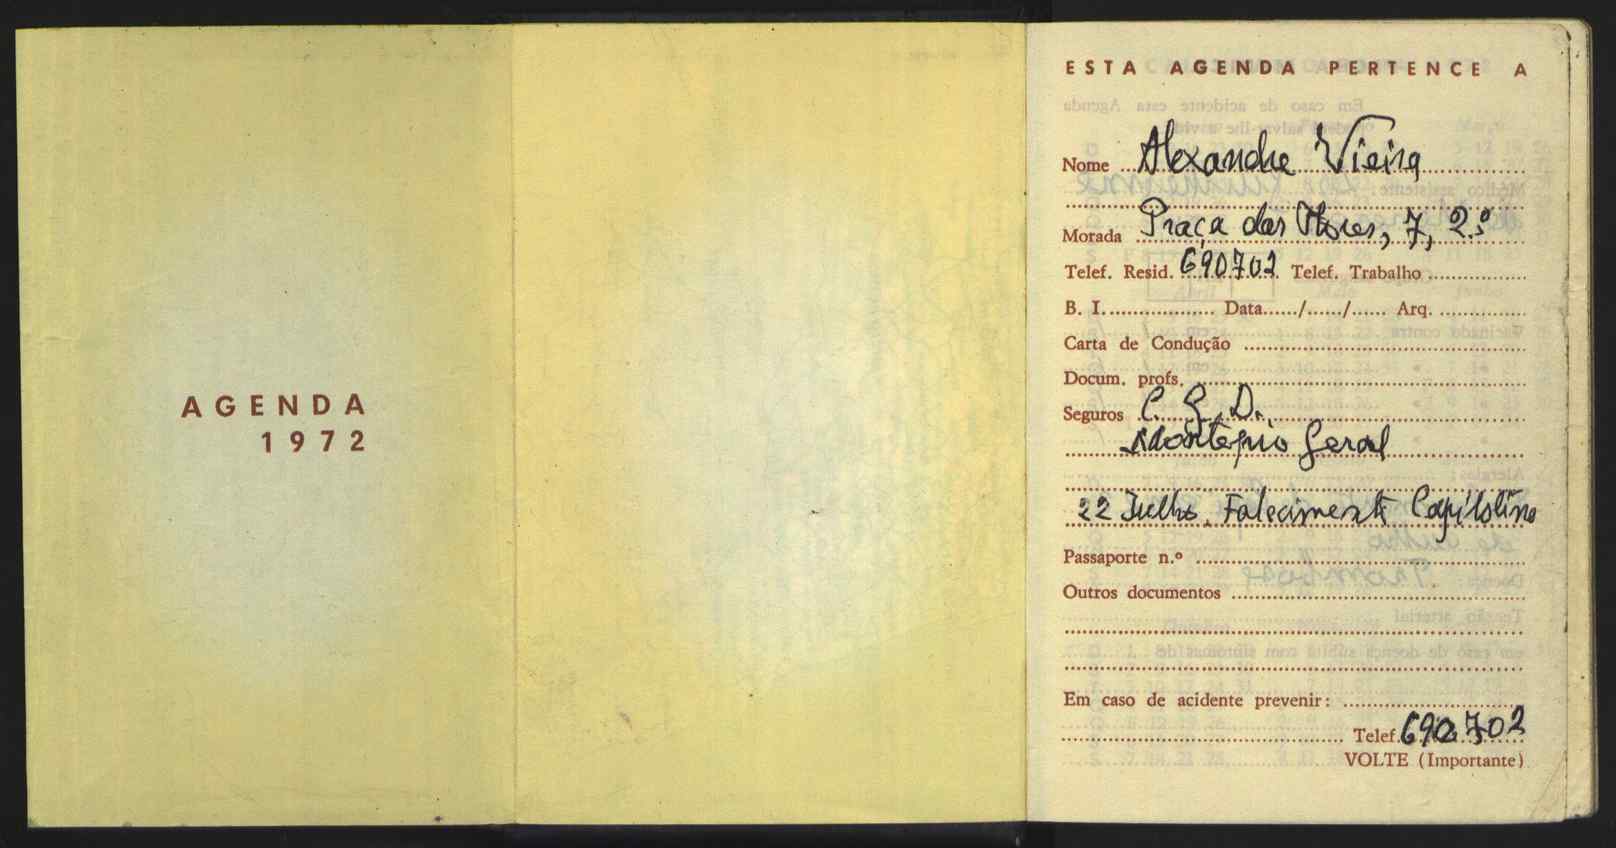 AGENDA
1972
ESTA AGENDA PERTENCE A
Nome Alexandre Vieira
Morada Praça das Flores, 7, 2.º
Telef. Resid. 690702 Telef. Trabalho
B. I. Data....../....../...... Arq.
Carta de Condução
Docum. profs.
Seguros C. G. D.
Montepio Geral
22 Julho, Falecimento Capitolino
Passaporte n.º
Outros documentos
Em caso de acidente prevenir:
Telef. 690702
VOLTE (Importante)